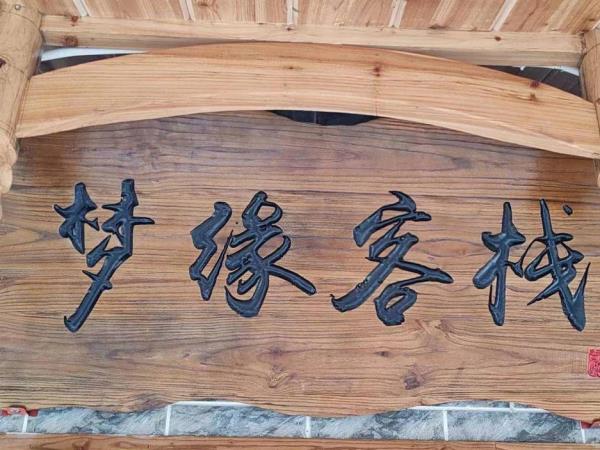 梦缘客栈